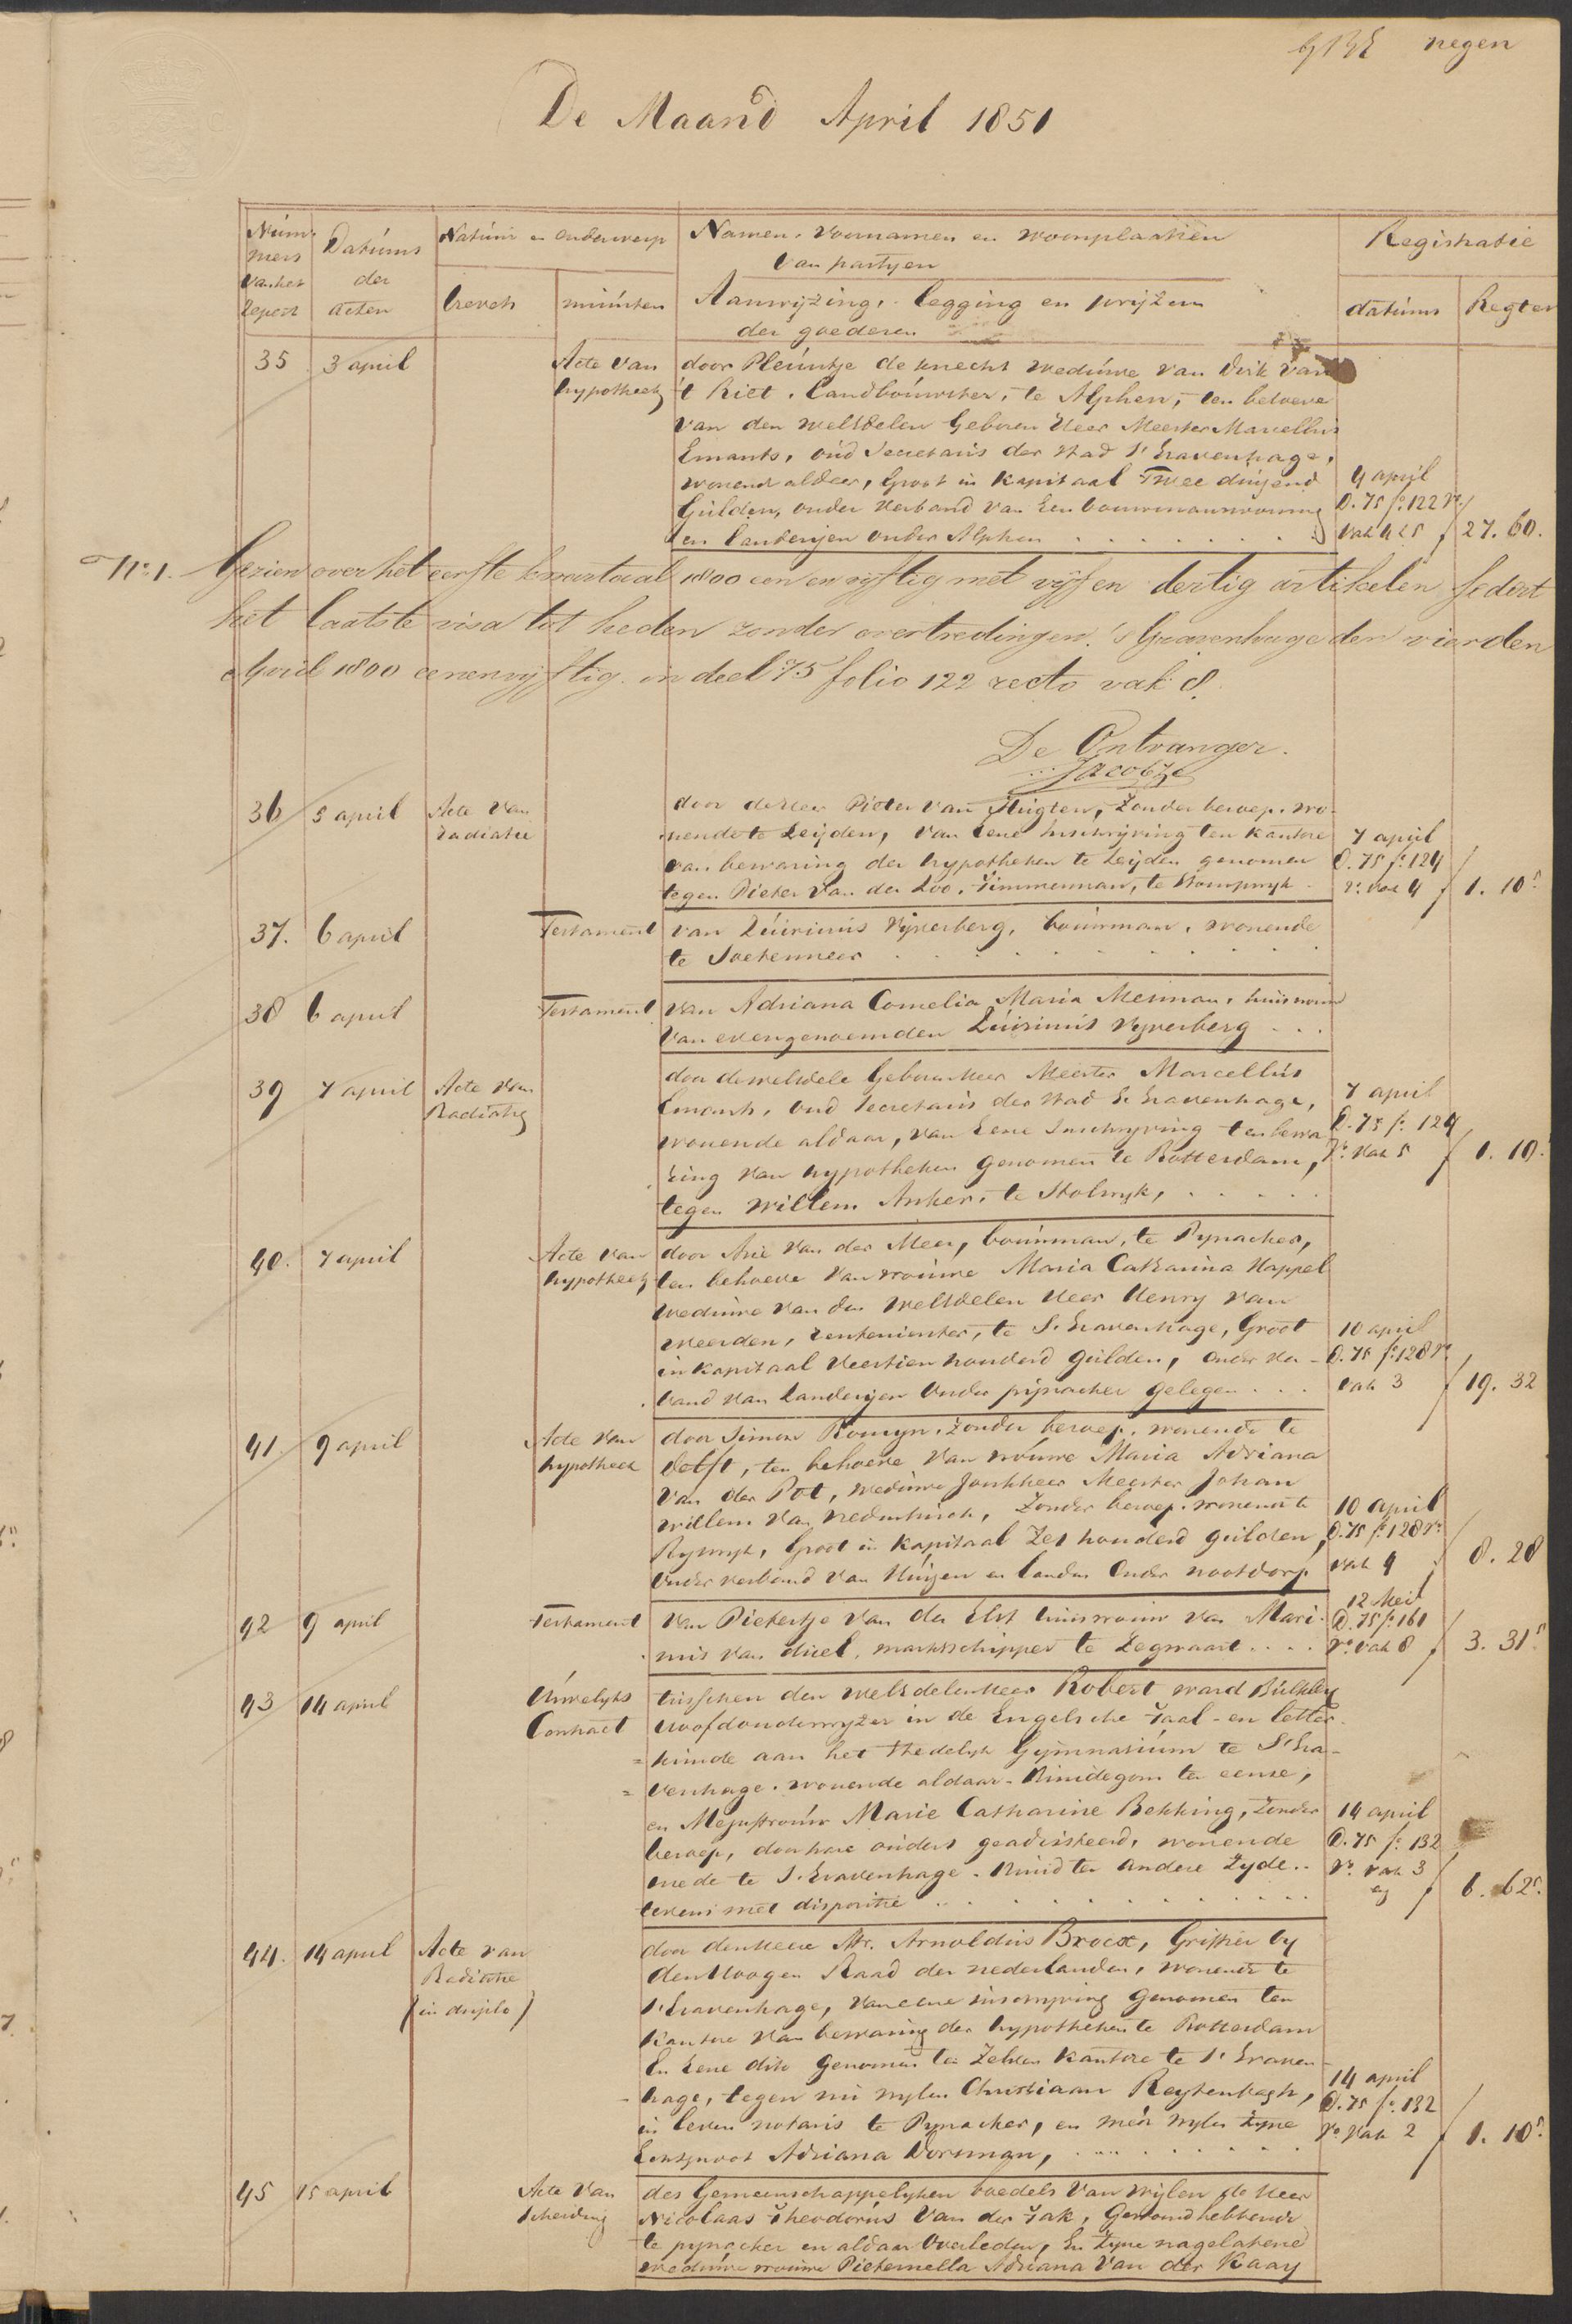 negen
De Maand April 1851
Nummers van het Repert
Datums der acten
Natuur en onderwerp
brevets
minuten
Namen, Voornamen en woonplaatsen
van partyen
Aanwyzing, legging en pryzen
der goederen
Registratie
datums
Regten
35 3 april Acte van hypotheek
door Pleuntje de Knecht weduwe van Dirk van
't Riet, landbouwster, te Alphen, ten behoeve
van den weledelen Geboren Heer Meester Marcellus
Emants, oud Secretaris der stad s'Gravenhage,
wonend aldaar, Groot in Kapitaal Twee duizend
Gulden, onder verband van Een bouwmanswoning
en landeryen onder Alphen
4 april
D. 75 fo. 122 ro.
vak 4 & 5 f 27. 60.
No. 1. Gezien over het eerste kwartaal 1800 een en vyftig met vyf en dertig artikelen sedert
het laatste visa tot heden zonder overtredingen. 's Gravenhage den vierden
April 1800 eenenvyftig in deel 75 folio 122 recto vak 8.
De Ontvanger.
Jacobze
36 5 april Acte van radiatie
door de Heer Pieter van Vlugten, Zonder beroep, wo-
nende te Leyden, van eene Inschryving ten kantore
van bewaring der hypotheken te Leyden genomen
tegen Pieter van der Loo, Timmerman, te Stompwyk
7 april
D. 75 fo. 124
ro. vak 4 f 1. 10 5
37. 6 april Testament
van Quirinus Vyverberg, bouwman, wonende
te Soetermeer
38 6 april Testament
van Adriana Cornelia Maria Mesman, huisvrouw
van evengenoemden Quirinus Vyverberg
39 7 april Acte van Radiatie
door den weledele Geboren Heer Meester Marcellus
Emants, oud Secretaris der stad s'Gravenhage,
wonende aldaar, van Eene Inschryving ten bewa
ring van hypotheken genomen te Rotterdam,
tegen Willem Anker, te Stolwyk,
7 april
D. 75 fo. 124
ro. vak 5 f 1. 10. 5
40. 7 april Acte van hypotheek
door Arie van der Meer, bouwman, te Pynacker,
ten behoeve van vrouwe Maria Catharina Happel
weduwe van den Weledelen Heer Henry van
Weerden, rentenierster, te s'Gravenhage, Groot
in Kapitaal Veertien honderd gulden, onder ver-
band van Landeryen onder pynacker gelegen
10 april
D. 75 fo. 128 ro.
vak 3 f 19. 32
41. 9 april Acte van hypotheek
door Simon Romyn, Zonder beroep, wonende te
Delft, ten behoeve van vrouwe Maria Adriana
van der Pot, weduwe Jonkheer Meester Johan
Willem van Nedenhisch, Zonder beroep, wonende te
Ryswyk, Groot in Kapitaal Zes honderd gulden,
Onder verband van Huizen en landen Onder nootdorp
10 april
D. 75 fo. 128 ro.
vak 4 f 8. 28
42 9 april Testament
van Pietertje van der Elst huisvrouw van Mari-
nus van driel, marktschipper te Zegwaart
12 Mei
D. 75 fo. 161
ro. vak 8 f 3. 31 5
43 14 april Huwelyks Contract
tusschen den weledelen Heer Robert ward Bulkley
Hoofdonderwyzer in de Engelsche Taal- en letter-
kunde aan het Stedelyk Gymnasium te S'Gra-
venhage, wonende aldaar. Bruidegom ter eenre,
en Mejufvrouw Marie Catharine Bekking, zonder
beroep, door hare ouders geadsisteerd, wonende
mede te s'Gravenhage. Bruid ter andere Zyde
tevens met dispositie
14 april
D. 75 fo. 132
ro. vak 3 f 6. 62 5.
44. 14 april Acte van Radiatie
(in duplo)
door den Heere Mr. Arnoldus Brocx, Griffier by
den Hoogen Raad der nederlanden, wonende te
s'Gravenhage, van eene inschryving genomen ten
Kantore van bewaring der hypotheken te Rotterdam
En Eene dito genomen ten Zelven kantore te s'Graven-
hage, tegen nu wylen Christiaan Reytenbagh,
in leven notaris te Pynacker, en mede wylen zyne
Echtgenoot Adriana Dorsman,
14 april
D. 75 fo. 132
ro vak 2 f 1. 10 5.
45 15 april Acte van scheiding
des Gemeenschappelyken boedels van wylen de Heer
Nicolaas Theodorus van der Tak, Gewoond hebbende
te pynacker en aldaar Overleden, En zyne nagelatene
weduwe vrouwe Pieternella Adriana van der Kaay